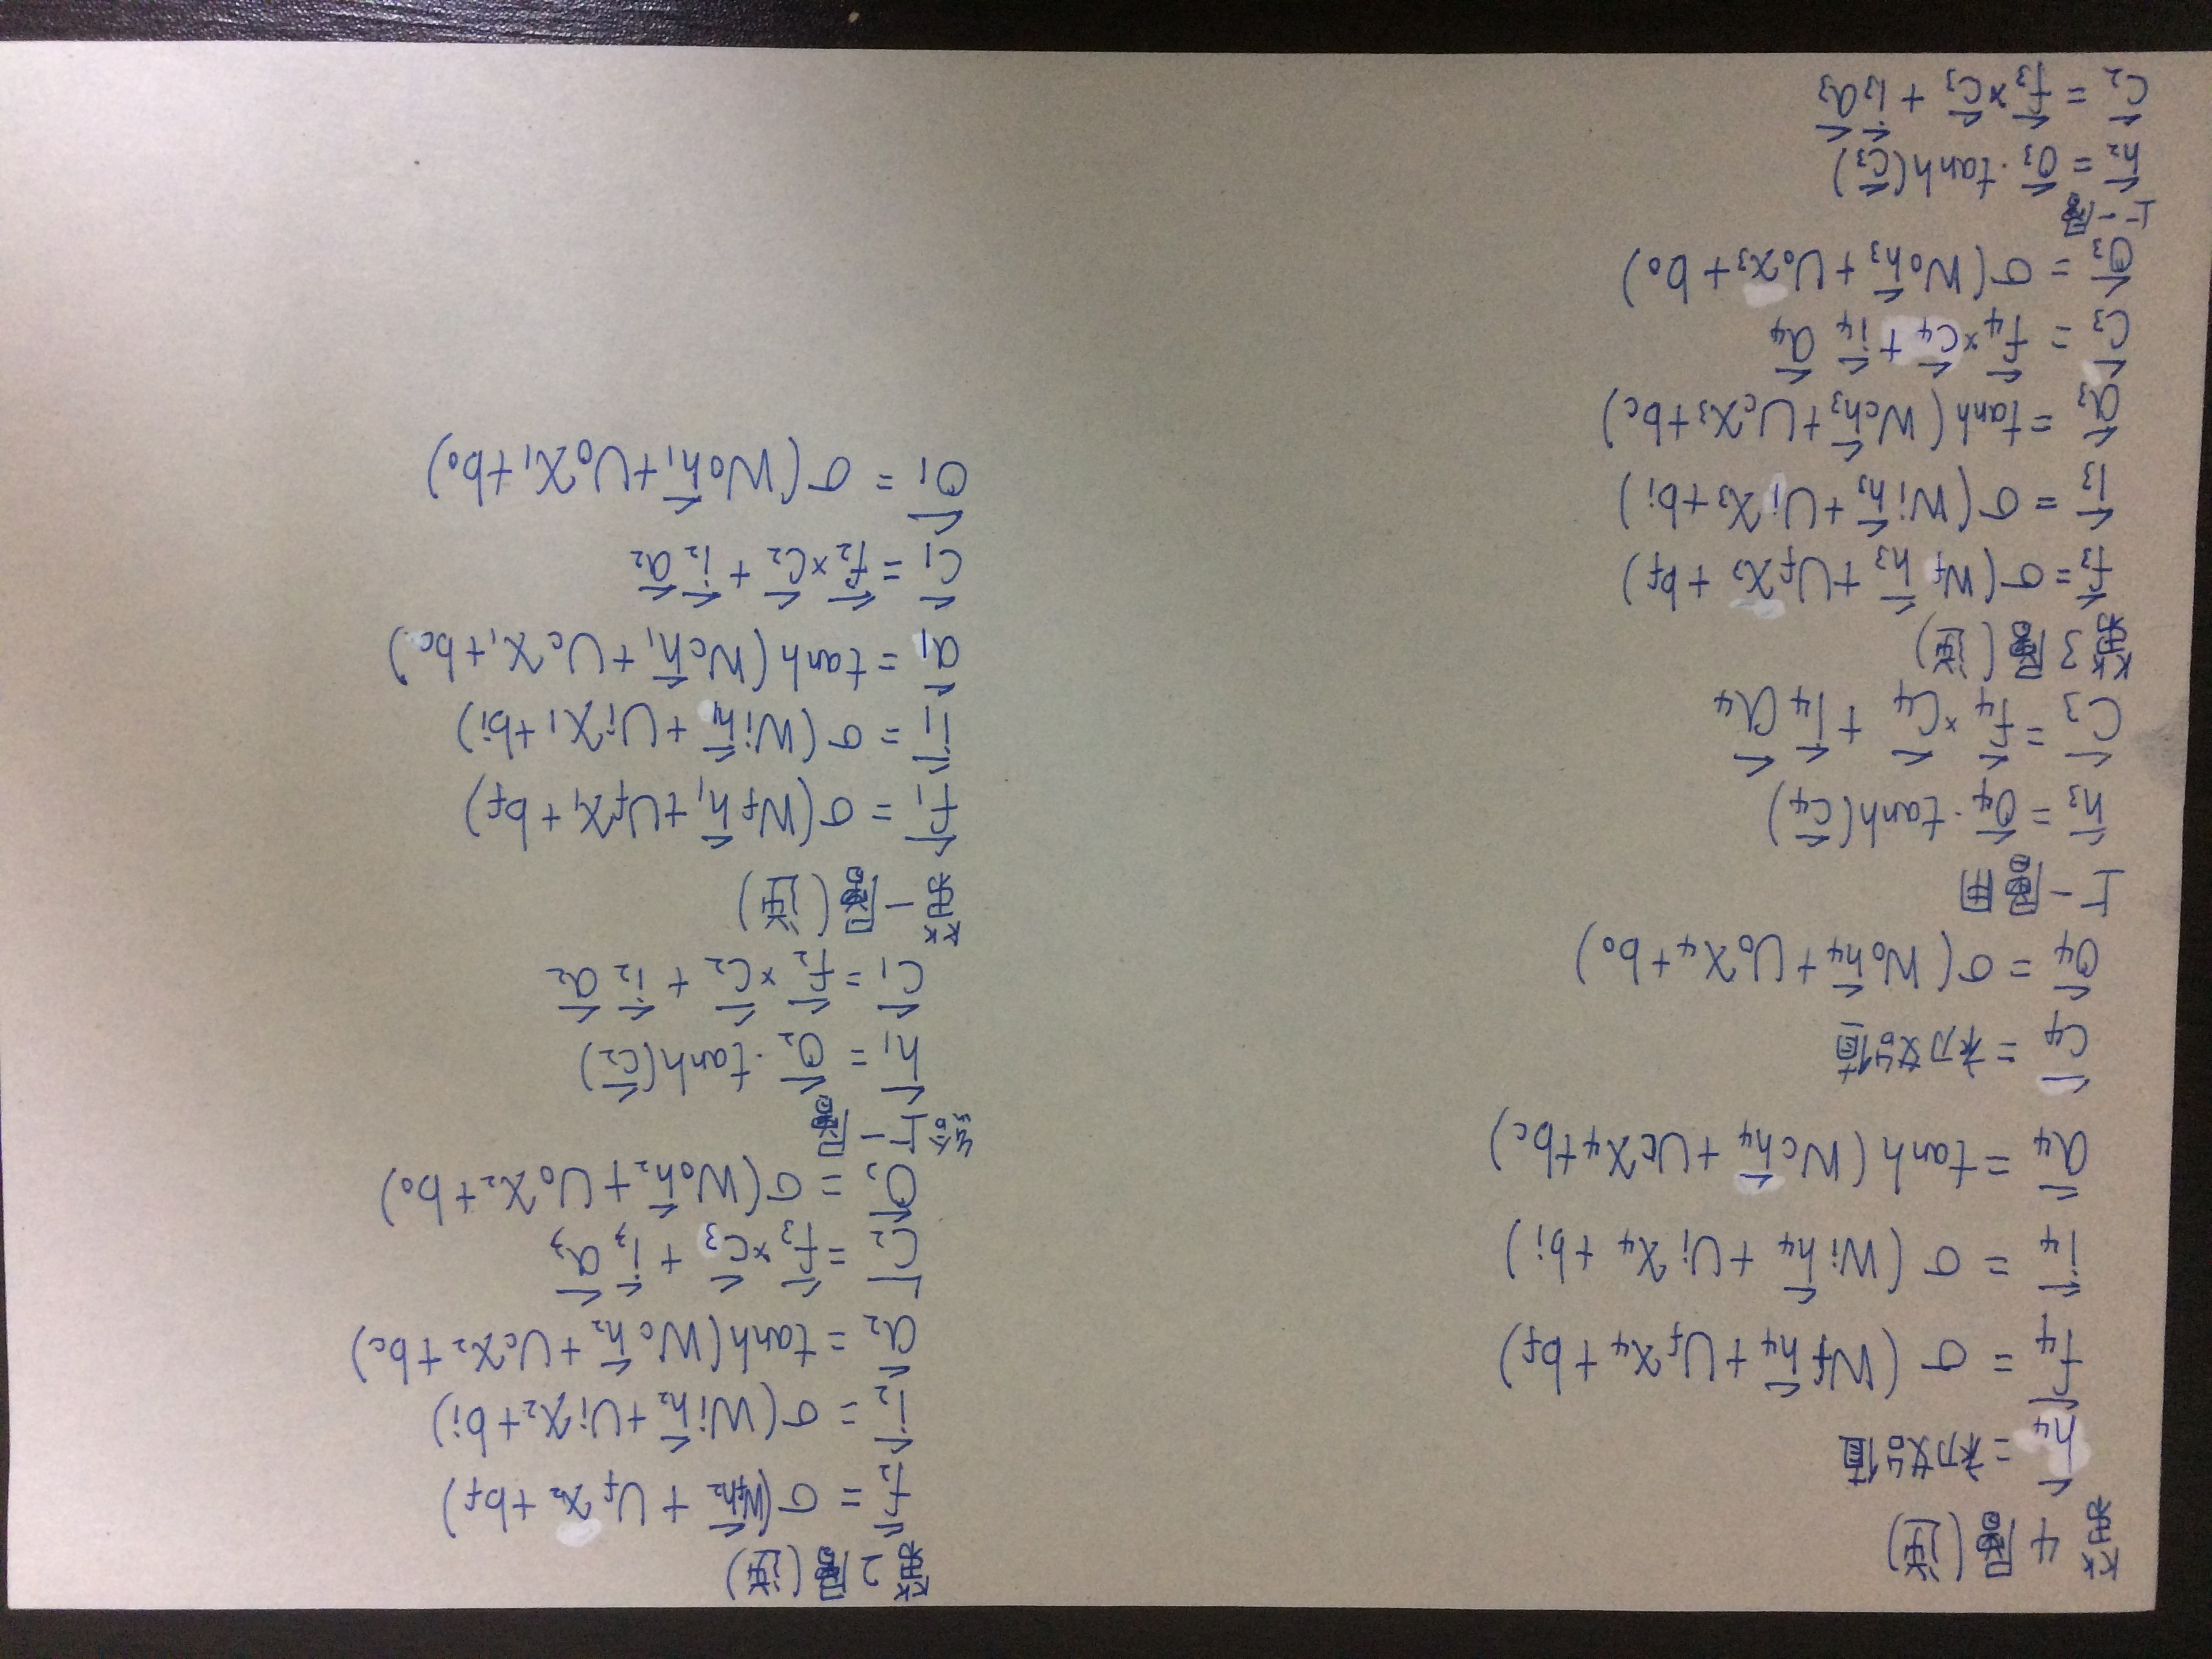 第4層(逆)
h⃖₄ = 初始值
f⃖₄ = σ(Wf h⃖₄ + Uf x₄ + bf)
i⃖₄ = σ(Wi h⃖₄ + Ui x₄ + bi)
a⃖₄ = tanh(Wc h⃖₄ + Uc x₄ + bc)
c⃖₄ = 初始值
o⃖₄ = σ(Wo h⃖₄ + Uo x₄ + bo)
上一層用
h⃖₃ = o⃖₄ · tanh(c⃖₄)
c⃖₃ = f⃖₄ × c⃖₄ + i⃖₄ a⃖₄
第3層(逆)
f⃖₃ = σ(Wf h⃖₃ + Uf x₃ + bf)
i⃖₃ = σ(Wi h⃖₃ + Ui x₃ + bi)
a⃖₃ = tanh(Wc h⃖₃ + Uc x₃ + bc)
c⃖₃ = f⃖₄ × c⃖₄ + i⃖₄ a⃖₄
o⃖₃ = σ(Wo h⃖₃ + Uo x₃ + bo)
上一層
h⃖₂ = o⃖₃ · tanh(c⃖₃)
c⃖₂ = f⃖₃ × c⃖₃ + i⃖₃ a⃖₃
第2層(逆)
f⃖₂ = σ(Wf h⃖₂ + Uf x₂ + bf)
i⃖₂ = σ(Wi h⃖₂ + Ui x₂ + bi)
a⃖₂ = tanh(Wc h⃖₂ + Uc x₂ + bc)
c⃖₂ = f⃖₃ × c⃖₃ + i⃖₃ a⃖₃
o⃖₂ = σ(Wo h⃖₂ + Uo x₂ + bo)
給上一層
h⃖₁ = o⃖₂ · tanh(c⃖₂)
c⃖₁ = f⃖₂ × c⃖₂ + i⃖₂ a⃖₂
第一層(逆)
f⃖₁ = σ(Wf h⃖₁ + Uf x₁ + bf)
i⃖₁ = σ(Wi h⃖₁ + Ui x₁ + bi)
a⃖₁ = tanh(Wc h⃖₁ + Uc x₁ + bc)
c⃖₁ = f⃖₂ × c⃖₂ + i⃖₂ a⃖₂
o⃖₁ = σ(Wo h⃖₁ + Uo x₁ + bo)